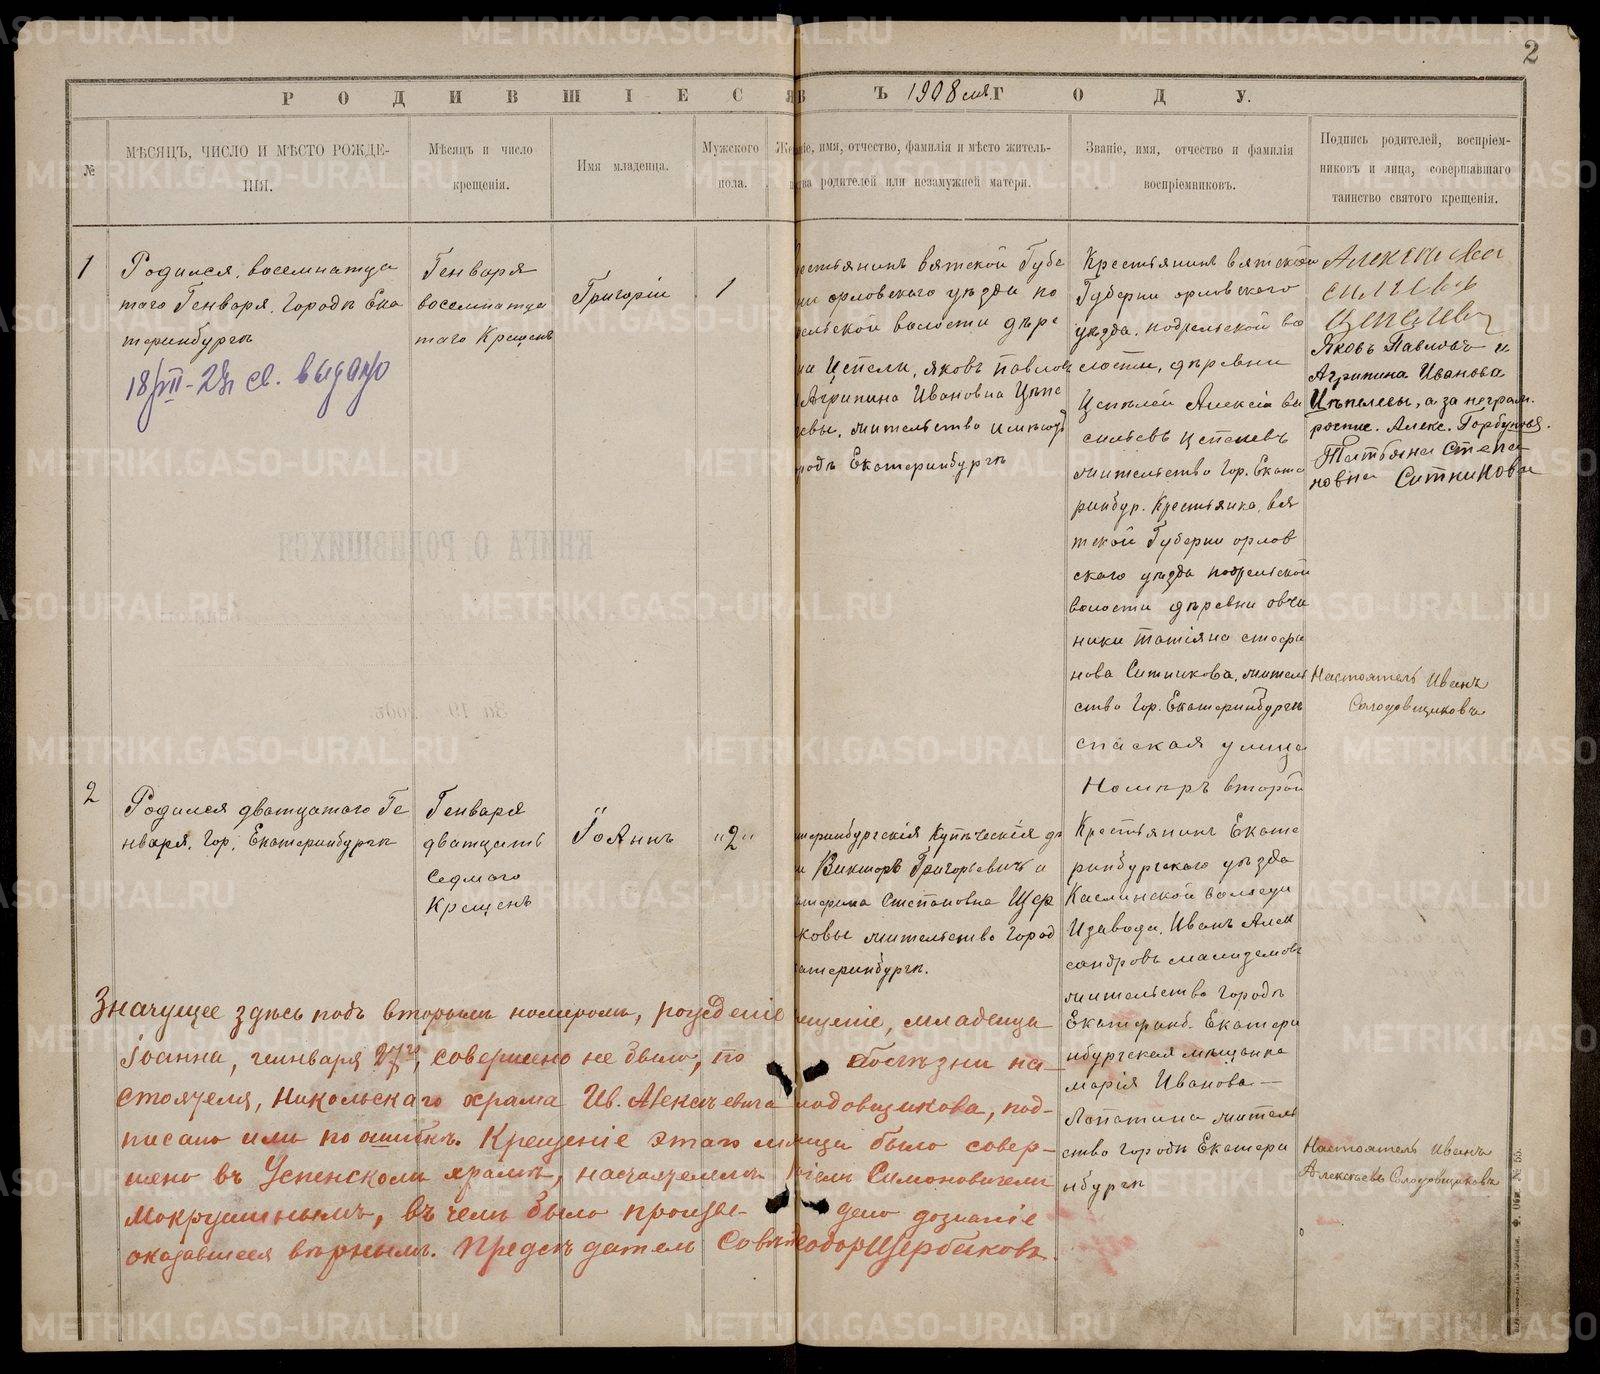 2
РОДИВШІЕСЯ ВЪ 1908 мъ ГОДУ.
№
МѢСЯЦЪ, ЧИСЛО И МѢСТО РОЖДЕ-
НІЯ.
Мѣсяцъ и число
крещенія.
Имя младенца.
Мужского
пола.
іе, имя, отчество, фамилія и мѣсто житель-
ва родителей или незамужней матери.
Званіе, имя, отчество и фамилія
воспріемниковъ.
Подпись родителей, воспріем-
никовъ и лица, совершавшаго
таинство святого крещенія.
1
Родился, восемнатца
таго Генваря. Городъ Ека
теринбургъ
18/VII-28г св. выдано
Генваря
восемнатца
таго Крещенъ
Григоріи
1
рестьянинъ вятской Губе
ни орловскаго уѣзда по
рельской волости дѣре
ни Цепели, яковъ павловъ
Агрипина Ивановна Цѣпе
евы, жительство имѣютъ
родъ Екатеринбургъ
Крестьянинъ вятской
Губерни орловского
уѣзда, подрельской во
лости, дѣревни
Цепѣлеи Алексіи ва
сильевъ цепелевъ
жительство Гор. Екате
ринбур. Крестьянка, вя
тской Губерни орлов
скаго уѣзда подрельской
волости дѣревни овчи
ники татіяна стефа
нова Ситникова, жител
ство Гор. Екатеринбургъ
спаская улица
Номѣръ второй
Алексѣи Ва
сильевъ
Цепелевъ
Яковъ Павловъ и
Агрипина Иванова
Цѣпелевы, а за неграм.
роспис. Алекс. Горбуновъ.
Татьяна Степа
новна Ситникова
Настоятель Иванъ
Солодовщиковъ
2
Родился дватцатаго Ге
нваря. Гор. Екатеринбургъ
Генваря
дватцать
Седмого
Крещенъ
Іоаннъ
"2"
теринбургскія Купѣческія д
и Викторъ Григорьевичъ и
атерина Степановна Щер
ковы жительство Город
атеринбургъ.
Крестьянинъ Екате
ринбургскаго уѣзда
Каслинской волости
Изавода. Иванъ Алек
сандровъ
жительство Городъ
Екатеринб. Екатери
нбургская мѣщанка
Марія Иванова
Лопатина жител
ство Городъ Екатери
нбургъ
Настоятель Иванъ
Алексѣевъ Солодовщиковъ
Значущее здѣсь подъ вторымъ номеромъ, рождение щеніе, младенца
Іоанна, генваря 27го, совершено не было, по болѣзни на-
стоятеля, Никольскаго храма Ив. Алексѣевича лодовщикова, под-
писано или по ошибкѣ. Крещеніе этаго м нца было совер-
шено въ Успенскомъ храмѣ, настоятелемъ Симоновичемъ
Мокрушинымъ, въ чемъ было произве- дено дознаніе
оказавшееся вѣрнымъ. Предсѣдатель Совѣ еодор Щербаковъ.
КНИГА О РОДИВШИХСЯ
METRIKI.GASO-URAL.RU